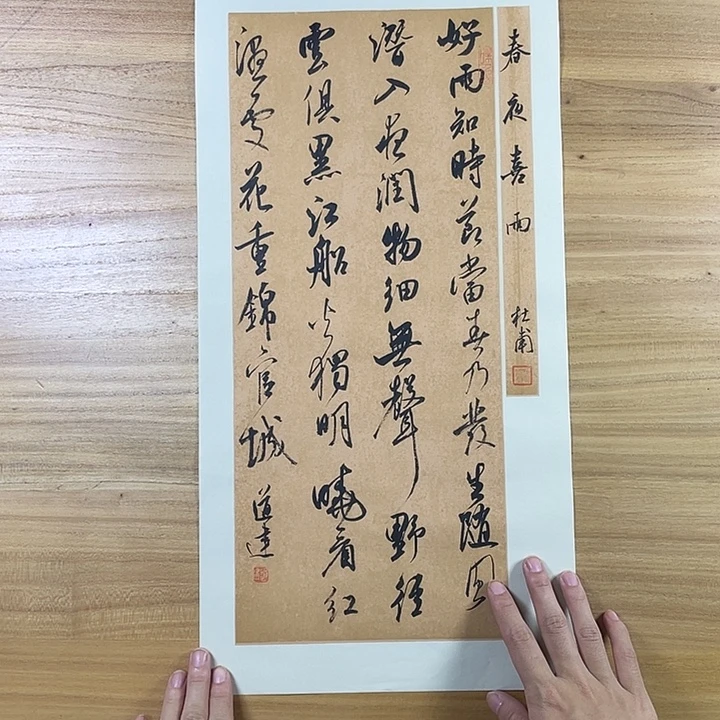 春夜喜雨 杜甫
好雨知時節當春乃發生隨風
潛入夜潤物細無聲野徑
雲俱黑江船火獨明曉看紅
濕處花重錦官城 道